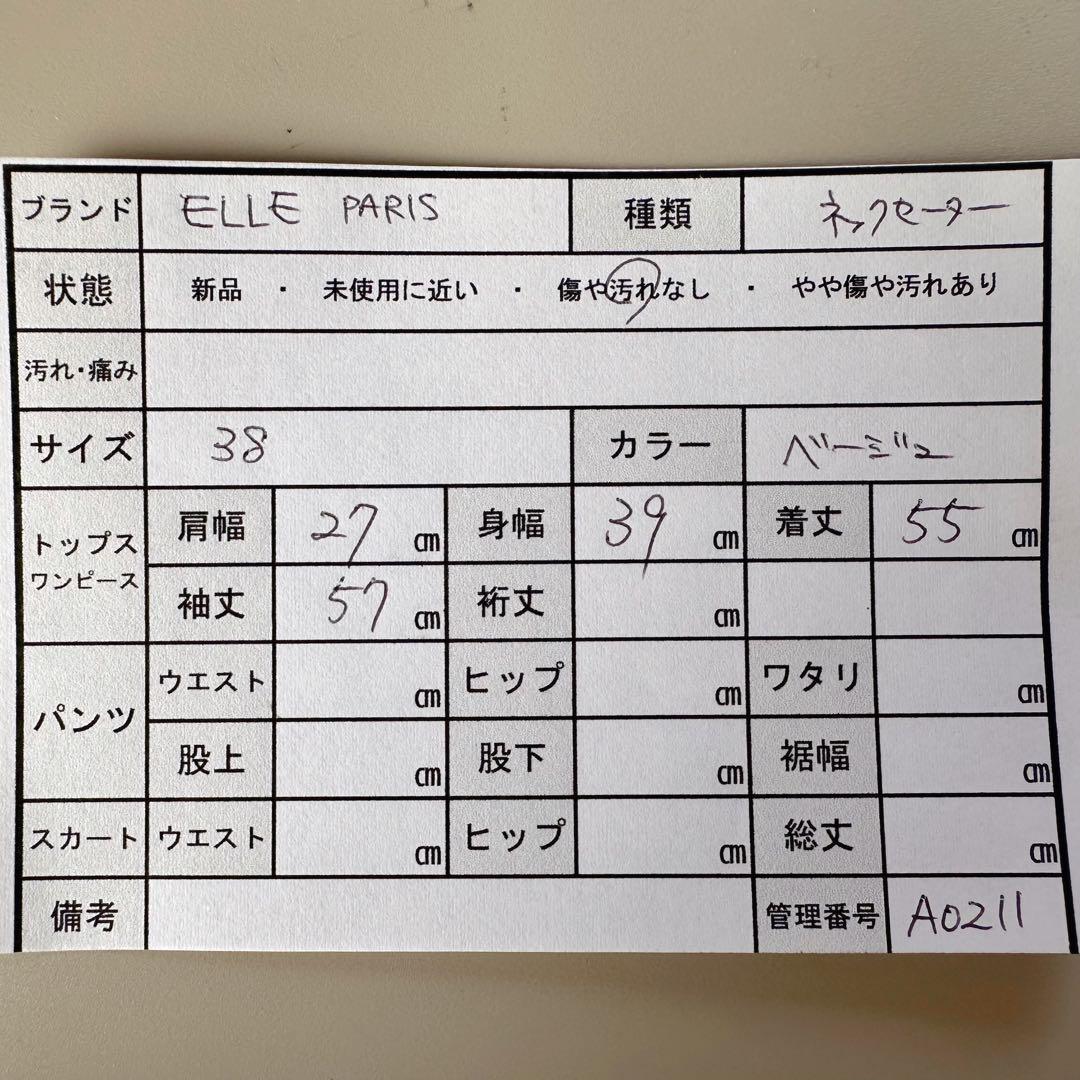 ブランド ELLE PARIS 種類 ネックセーター
状態 新品 ・ 未使用に近い ・ 傷や汚れなし ・ やや傷や汚れあり
汚れ・痛み
サイズ 38 カラー ベージュ
トップス ワンピース 肩幅 27 cm 身幅 39 cm 着丈 55 cm
袖丈 57 cm 裄丈 cm
パンツ ウエスト cm ヒップ cm ワタリ cm
股上 cm 股下 cm 裾幅 cm
スカート ウエスト cm ヒップ cm 総丈 cm
備考 管理番号 A0211